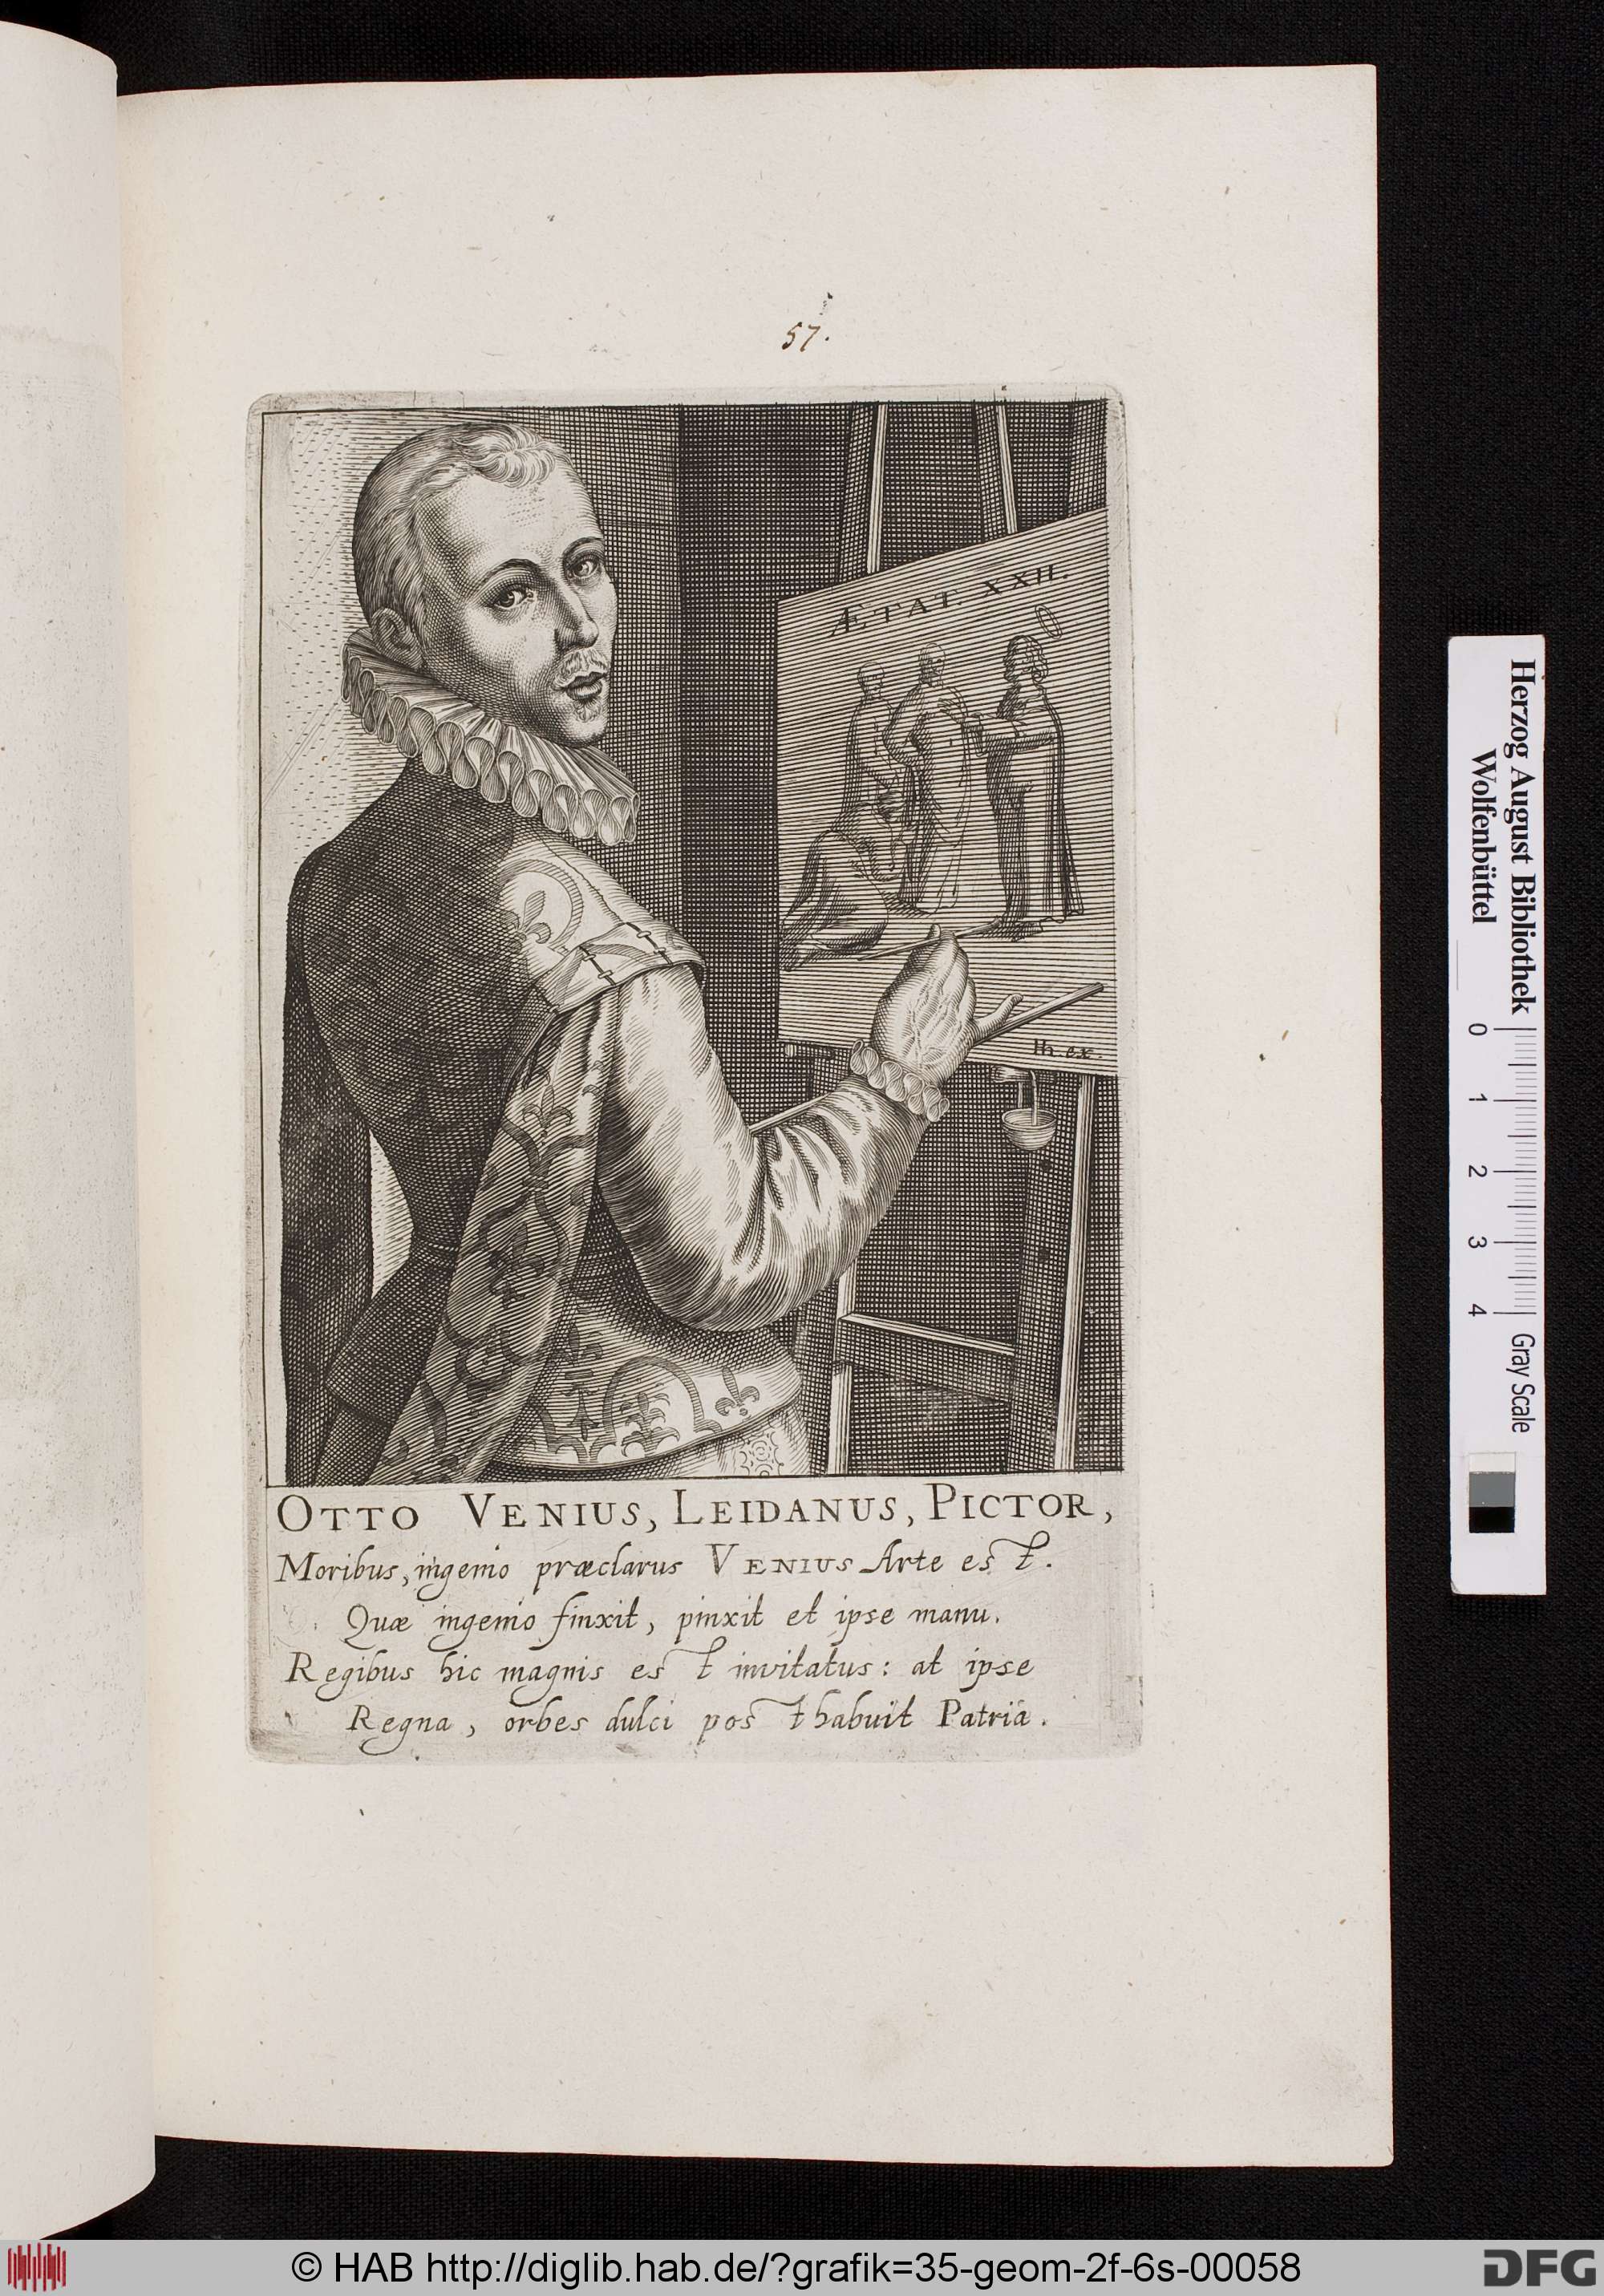 57.
ÆTAT. XXII.
Hh ex.
OTTO VENIUS, LEIDANUS, PICTOR,
Moribus, ingenio præclarus VENIUS Arte est.
Quæ ingenio finxit, pinxit et ipse manu.
Regibus hic magnis est invitatus: at ipse
Regna, orbes dulci post habuit Patriâ.
Herzog August Bibliothek
Wolfenbüttel
0 1 2 3 4
Gray Scale
© HAB http://diglib.hab.de/?grafik=35-geom-2f-6s-00058
DFG